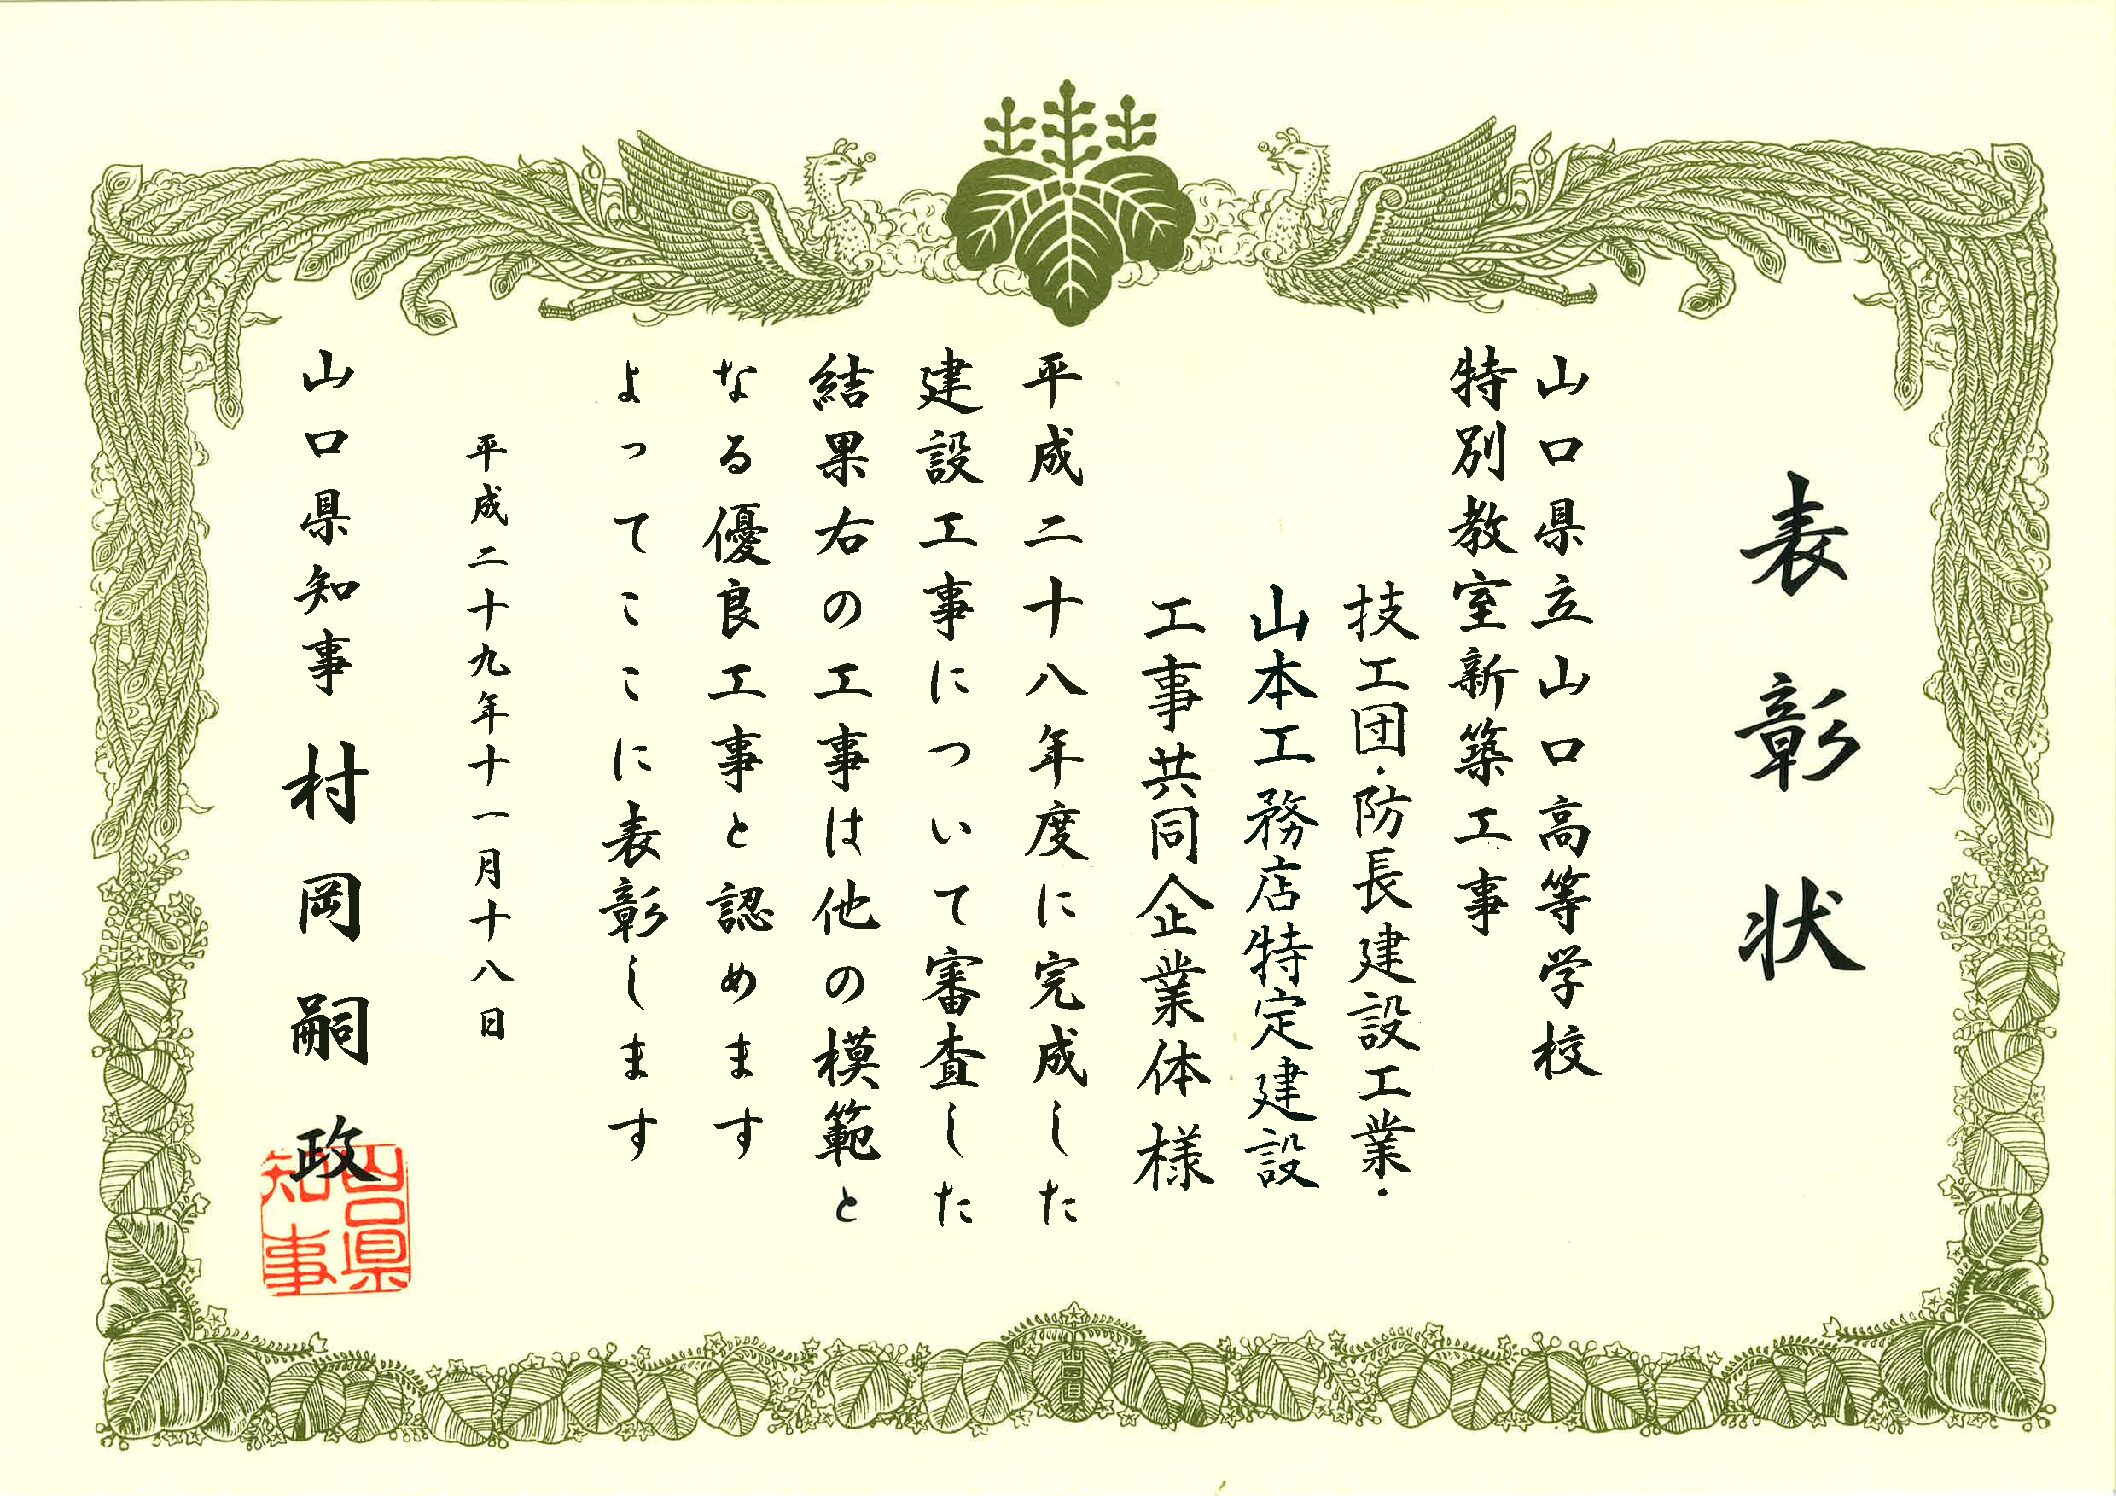 表彰状
山口県立山口高等学校
特別教室新築工事
技工団・防長建設工業・
山本工務店特定建設
工事共同企業体様
平成二十八年度に完成した
建設工事について審査した
結果右の工事は他の模範と
なる優良工事と認めます
よってここに表彰します
平成二十九年十一月十八日
山口県知事 村岡嗣政
山口県
知事